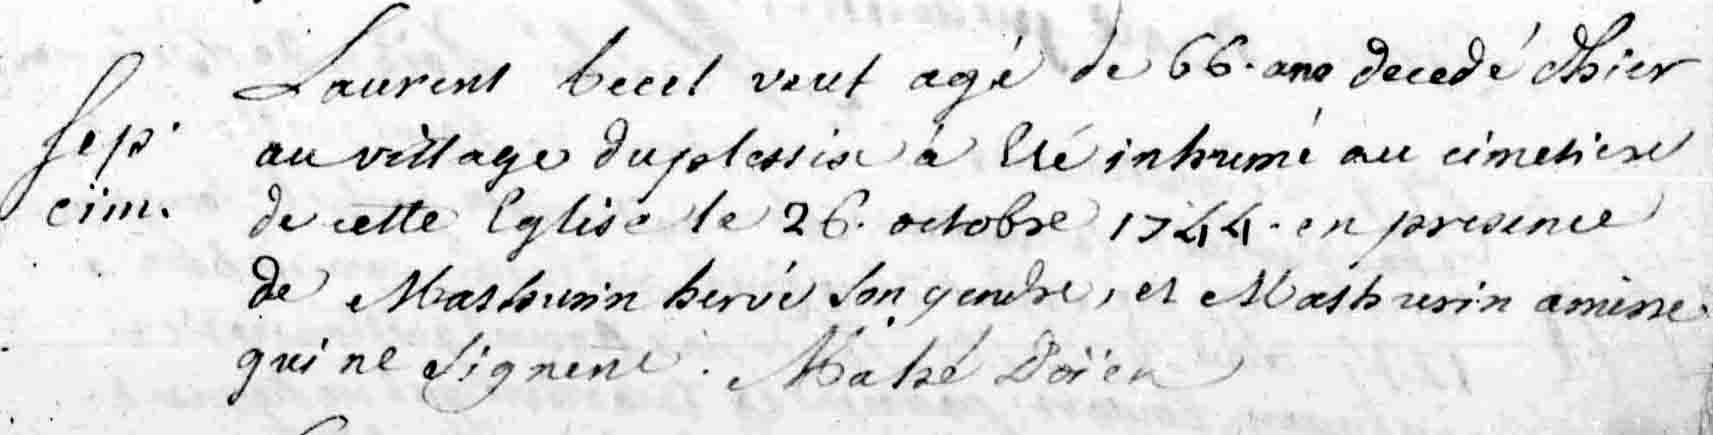 Laurent becel veuf agé de 66. ans decedé d'hier
sep.
au village duplessix à Eté inhumé au cimetiere
cim.
de cette Eglise le 26. octobre 1744. en presence
de Mathurin hervé son gendre, et Mathurin
qui ne signent. Mahé Doïen